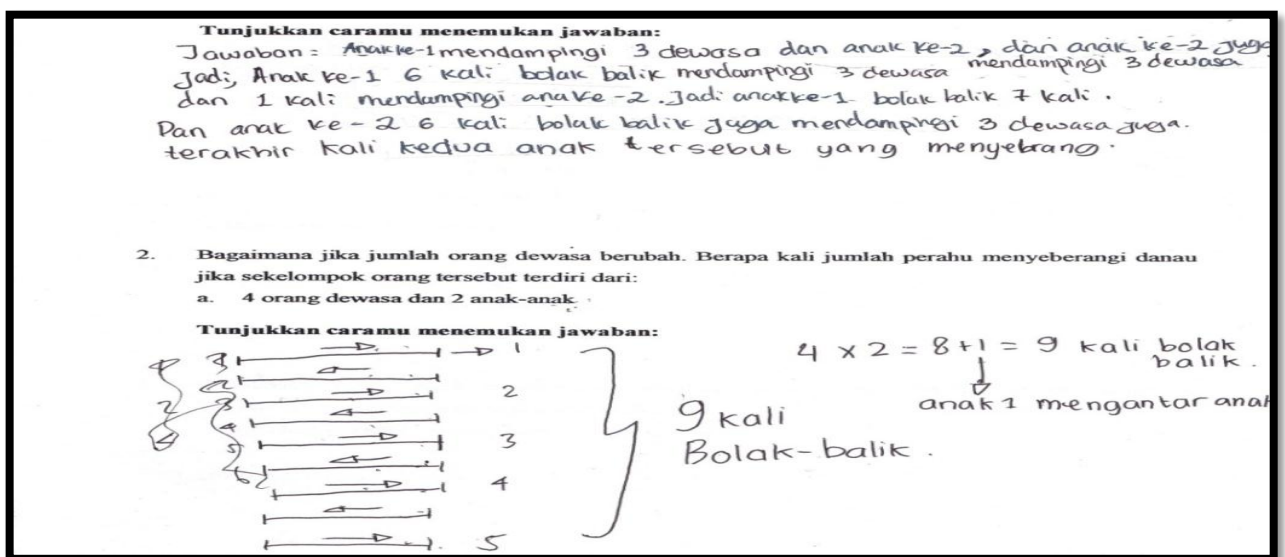 Tunjukkan caramu menemukan jawaban:
Jawaban = Anak ke-1 mendampingi 3 dewasa dan anak ke-2, dan anak ke-2 juga
mendampingi 3 dewasa
Jadi, Anak ke-1 6 kali bolak balik mendampingi 3 dewasa
dan 1 kali mendampingi anak ke-2. Jadi anak ke-1 bolak balik 7 kali.
Dan anak ke-2 6 kali bolak balik juga mendampingi 3 dewasa juga.
terakhir kali kedua anak tersebut yang menyebrang.
2. Bagaimana jika jumlah orang dewasa berubah. Berapa kali jumlah perahu menyeberangi danau
jika sekelompok orang tersebut terdiri dari:
a. 4 orang dewasa dan 2 anak-anak
Tunjukkan caramu menemukan jawaban:
1
2
3
4
5
9 kali
Bolak-balik.
4 x 2 = 8 + 1 = 9 kali bolak
balik.
anak 1 mengantar